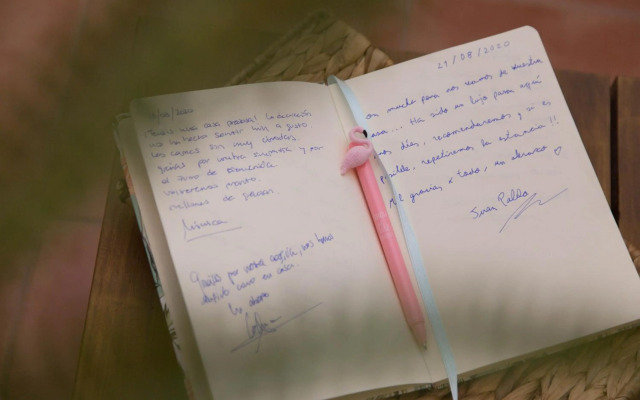 /2020
Tenéis una casa preciosa! La decoración
nos ha hecho sentir muy a gusto,
Las camas son muy cómodas.
gracias por vuestra simpatía y por
el zumo de bienvenida
volveremos pronto
millones de gracias.
Gracias por vuestra acogida, nos hemos
sentido como en casa.
Un abrazo
29/08/2020
on mucha pena nos vamos de vuestra
casa... Ha sido un lujo pasar aquí
unos días, recomendaremos y si es
posible, repetiremos la estancia!!
Mil gracias x todo, un abrazo
Juan Pablo